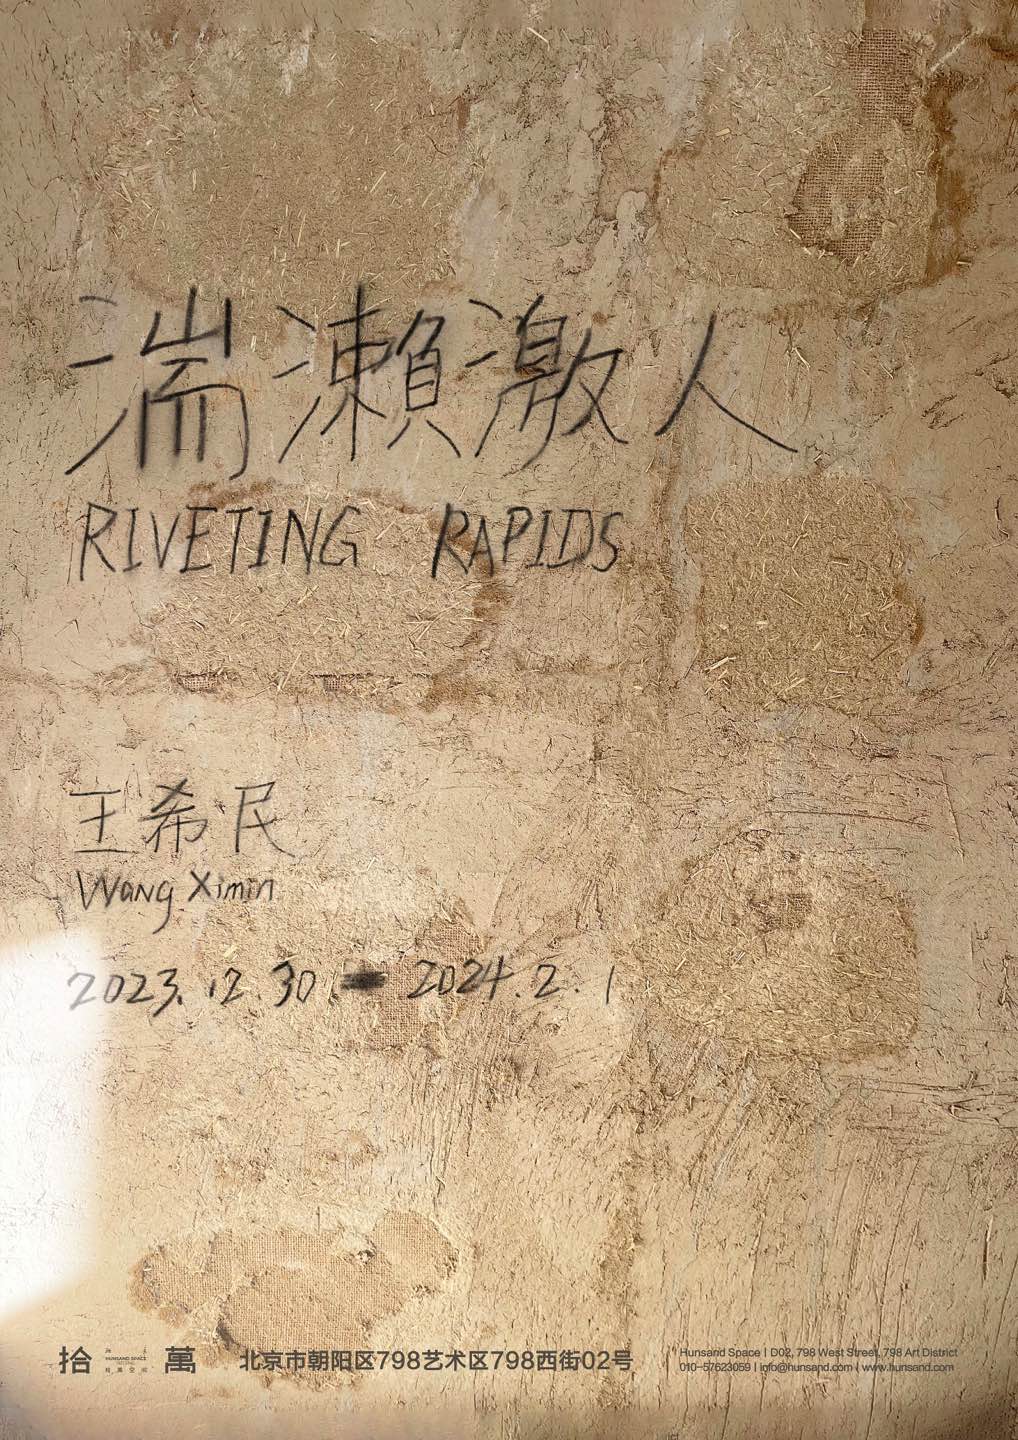 湍濑激人
RIVETING RAPIDS
王希民
Wang Ximin
2023.12.30 — 2024.2.1
拾 HUNSAND SPACE 拾萬空间 萬
北京市朝阳区798艺术区798西街02号
Hunsand Space | D02, 798 West Street, 798 Art District
010-57623059 | info@hunsand.com | www.hunsand.com